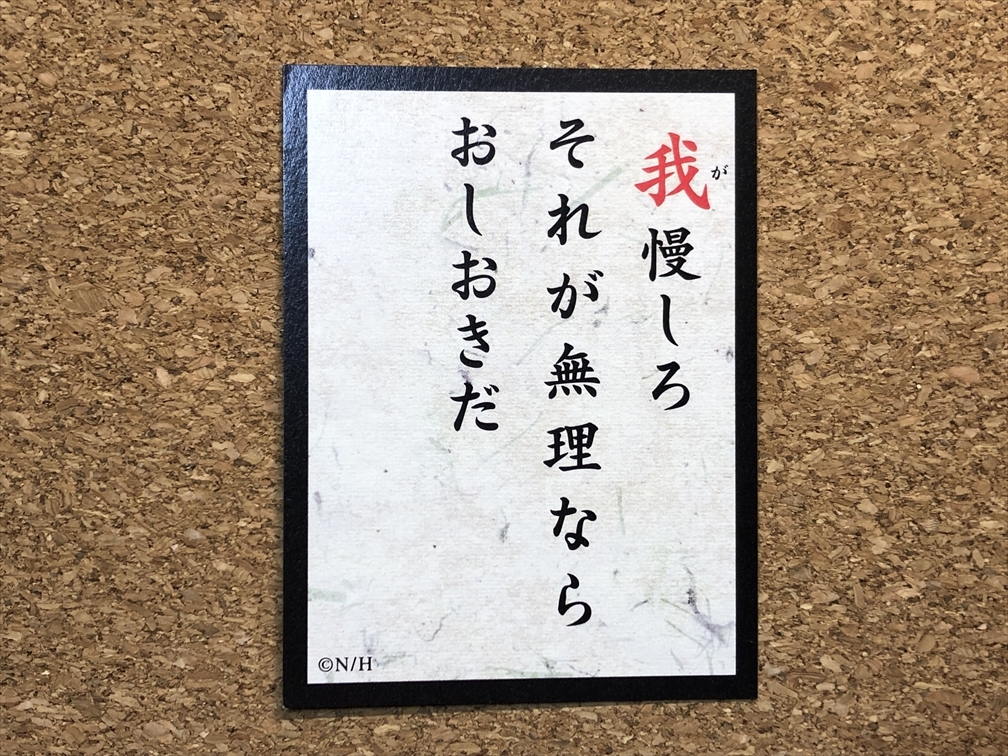 我慢しろ
が
それが無理なら
おしおきだ
©N/H